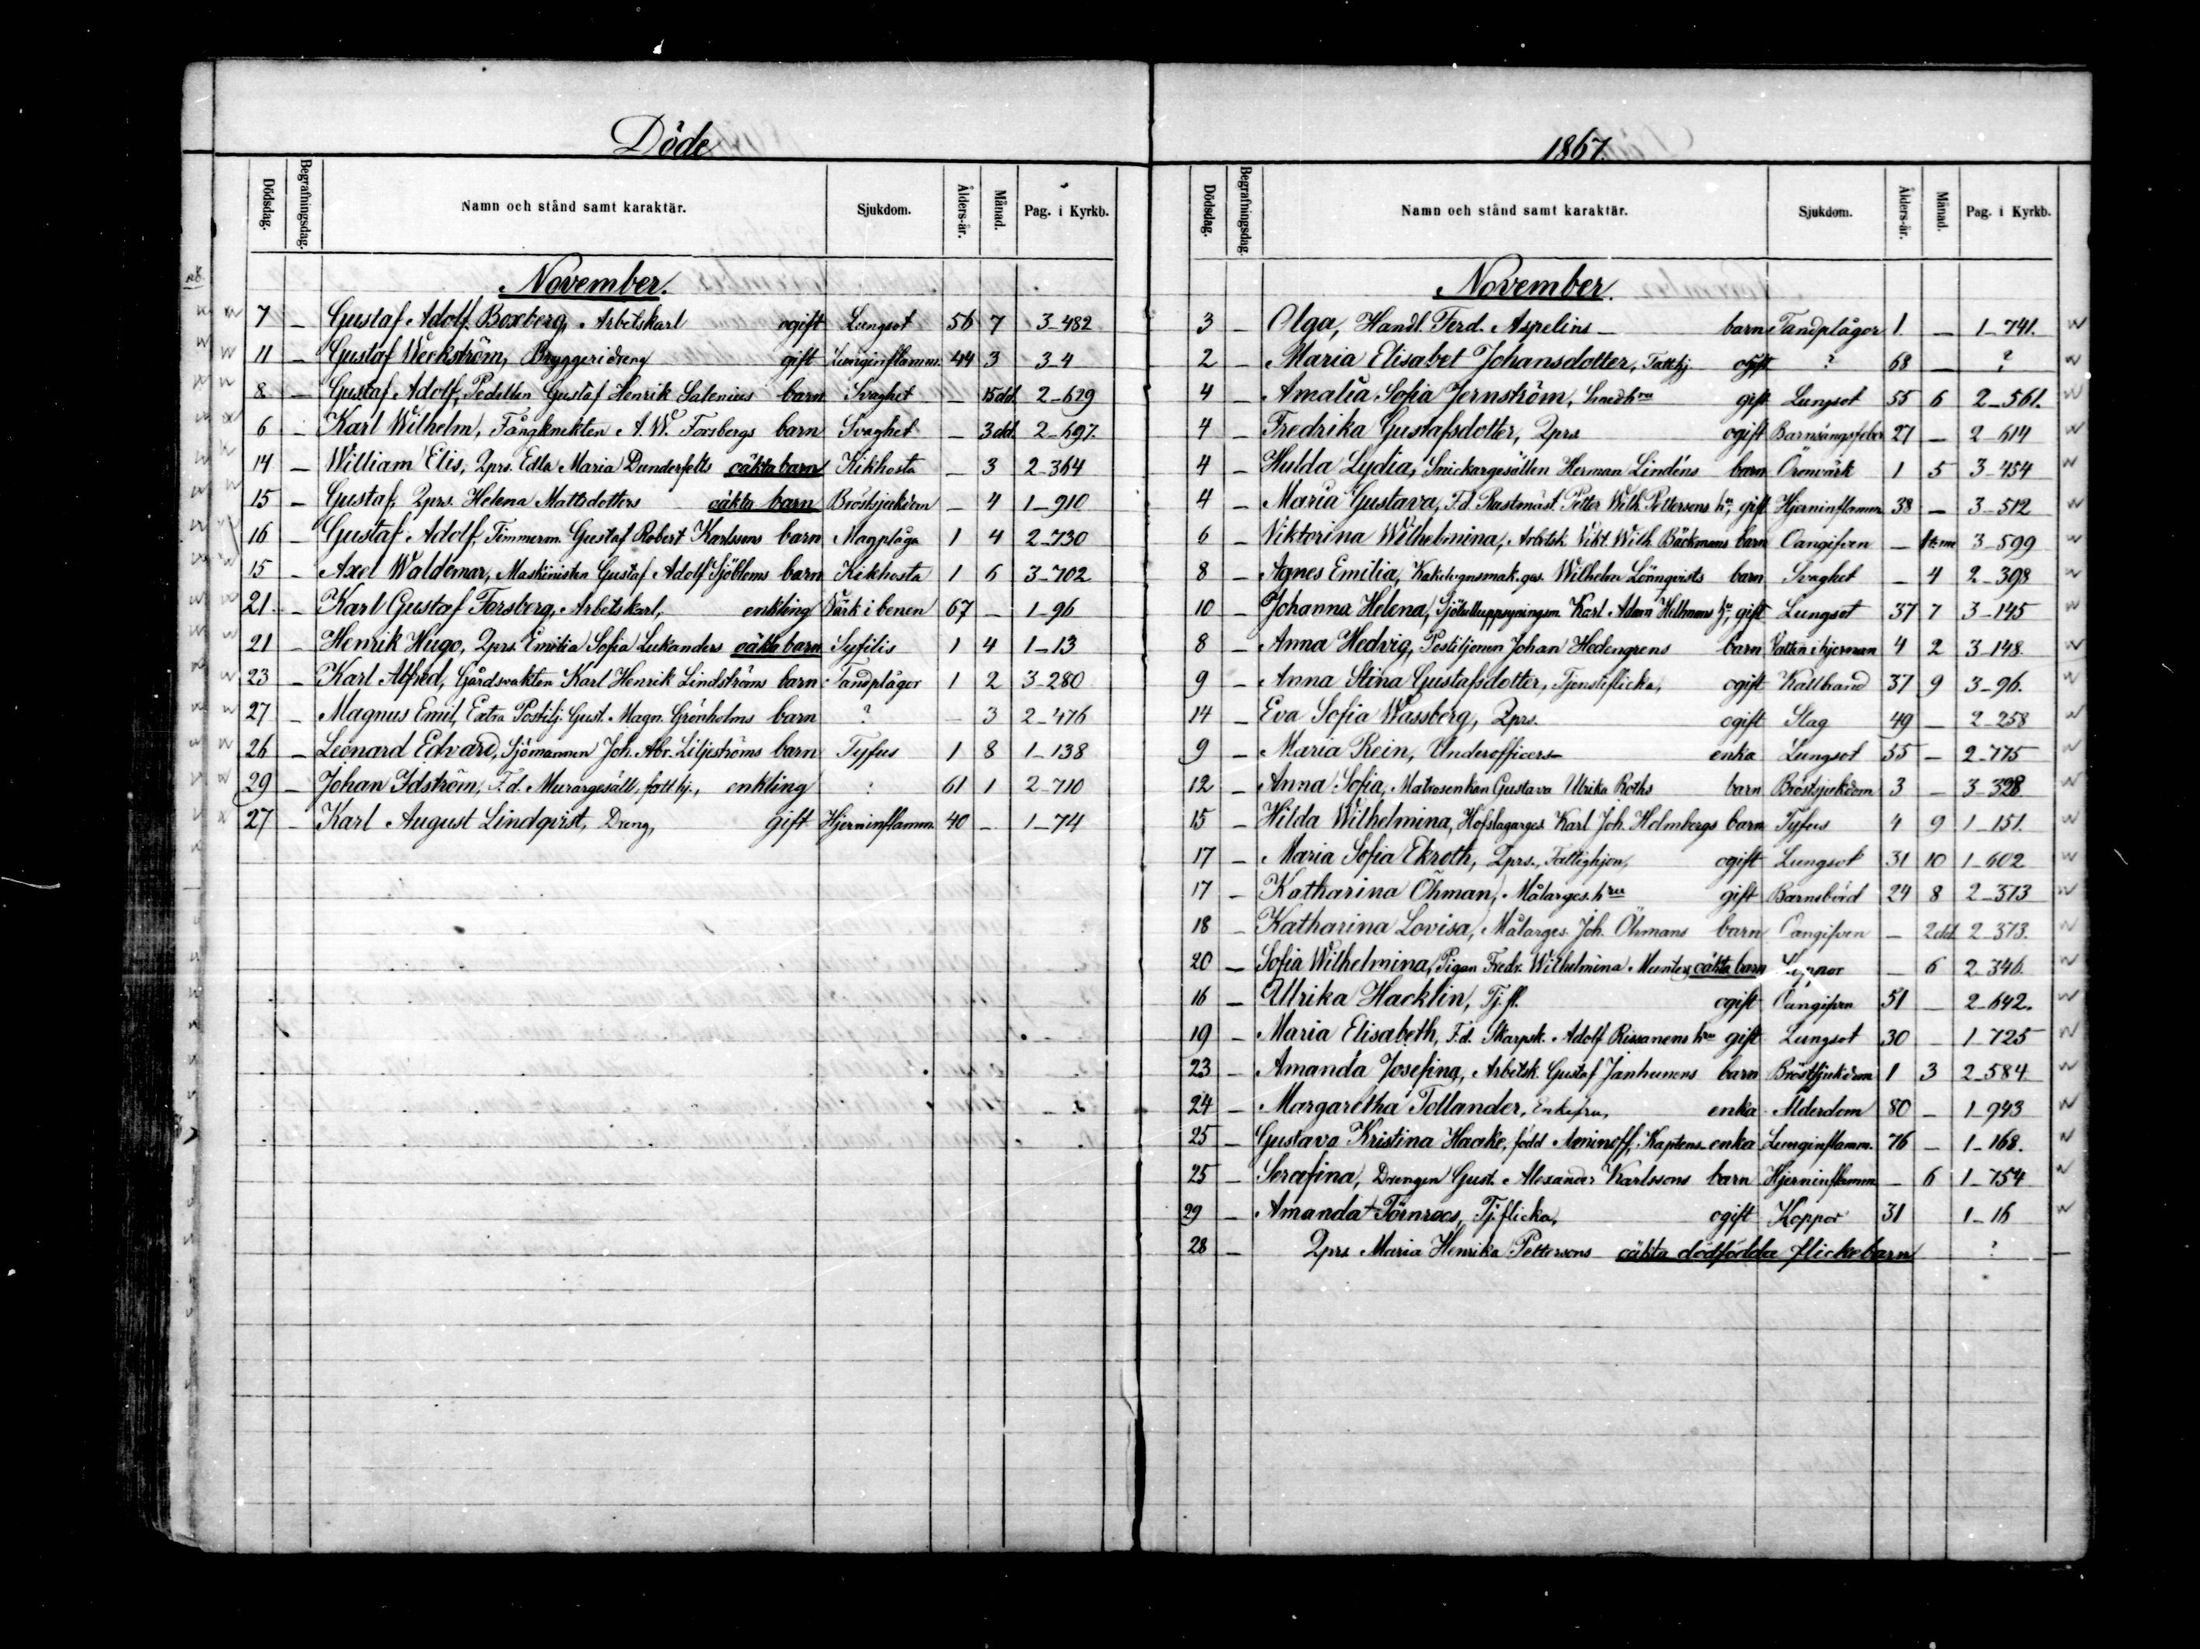 Döde
Dödsdag. Begrafningsdag. Namn och stånd samt karaktär. Sjukdom. Ålders-år. Månad. Pag. i Kyrkb.
November.
7 — Gustaf Adolf Boxberg, Arbetskarl ogift Lungsot 56 7 3–482
11 — Gustaf Weckström, Bryggeridreng gift Lunginflamm. 44 3 3–4
8 — Gustaf Adolf, Pedellen Gustaf Henrik Salenius barn Svaghet — 15 dd. 2–629
6 — Karl Wilhelm, Fångknekten A. W. Forsbergs barn Svaghet — 3 dd. 2–697.
14 — William Elis, Qprs. Edla Maria Dunderfelts oäkta barn Kikhosta — 3 2–364
15 — Gustaf, Qprs. Helena Mattsdotters oäkta barn Bröstsjukdom — 4 1–910
16 — Gustaf Adolf, Timmerm. Gustaf Robert Karlssons barn Magplåga 1 4 2–730
15 — Axel Waldemar, Maskinisten Gustaf Adolf Sjöbloms barn Kikhosta 1 6 3–702
21 — Karl Gustaf Forsberg, Arbetskarl, enkling Värk i benen 67 — 1–96
21 — Henrik Hugo, Qprs. Emilia Sofia Lukanders oäkta barn Syfilis 1 4 1–13
23 — Karl Alfred, Gårdsvakten Karl Henrik Lindströms barn Tandplågor 1 2 3–280
27 — Magnus Emil, Extra Postilj. Gust. Magn. Grönholms barn ? — 3 2–476
26 — Leonard Edvard, Sjömannen Joh. Abr. Liljeströms barn Tyfus 1 8 1–138
29 — Johan Idström, F.d. Murargesäll, fatt.hj., enkling ? 61 1 2–710
27 — Karl August Lindqvist, Dreng, gift Hjerninflamm. 40 — 1–74
1867.
Dödsdag. Begrafningsdag Namn och stånd samt karaktär. Sjukdom. Ålders-år. Månad. Pag. i Kyrkb.
November.
3 — Olga, Handl. Ferd. Aspelins — barn Tandplågor 1 — 1–741.
2 — Maria Elisabet Johansdotter, ogift ? 68 — ?
4 — Amalia Sofia Jernström, Smedhru gift Lungsot 55 6 2–561.
4 — Fredrika Gustafsdotter, Qprs. ogift Barnsängsfeber 27 — 2–614
4 — Hulda Lydia, Snickargesällen Herman Lindéns barn Öronvärk 1 5 3–454
4 — Maria Gustava, F.d. Rastmäst. Petter Wilh. Pettersons hru, gift Hjerninflamm. 38 — 3–512
6 — Viktorina Wilhelmina, Arbetsk. Vikt. Wilh. Bäckmans barn Oangifven — 3–599
8 — Agnes Emilia, Kakelugnsmak.ges. Wilhelm Lönnqvists barn Svaghet — 4 2–398
10 — Johanna Helena, Sjötulluppsyningsm. Karl Adam Hellmans hru, gift Lungsot 37 7 3–145
8 — Anna Hedvig, Postiljonen Johan Hedengrens barn Vatten i hjernan 4 2 3–148
9 — Anna Stina Gustafsdotter, Tjensteflicka, ogift Kallbrand 37 9 3–96.
14 — Eva Sofia Wassberg, Qprs. ogift Slag 49 — 2–258
9 — Maria Rein, Underofficers— enka Lungsot 55 — 2–775
12 — Anna Sofia, Matrosenkan Gustava Ulrika Roths barn Bröstsjukdom 3 — 3–398
15 — Hilda Wilhelmina, Hofslagarges. Karl Joh. Holmbergs barn Tyfus 4 9 1–151.
17 — Maria Sofia Ekroth, Qprs., Fattighjon, ogift Lungsot 31 10 1–602
17 — Katharina Öhman, Målarges. hru gift Barnsbörd 24 8 2–373
18 — Katharina Lovisa, Målarges. Joh. Öhmans barn Oangifven — 2 dd. 2–373.
20 — Sofia Wilhelmina, Pigan Fredr. Wilhelmina Munters oäkta barn Koppor — 6 2–346.
16 — Ulrika Hacklin, Tj.fl. ogift Oangifven 51 — 2–642.
19 — Maria Elisabeth, F.d. Skarpsk. Adolf Rissanens hru gift Lungsot 30 — 1–725
23 — Amanda Josefina, Arbetsk. Gustaf Janhunens barn Bröstsjukdom 1 3 2–584
24 — Margaretha Tollander, Enkefru, enka Ålderdom 80 — 1–943
25 — Gustava Kristina Haake, född Aminoff, Kaptens enka Lunginflamm. 76 — 1–168.
25 — Serafina, Drengen Gust. Alexander Karlssons barn Hjerninflamm. — 6 1–754
29 — Amanda Törnroos, Tj.flicka, ogift Koppor 31 1–16
28 — Qprs. Maria Henrika Pettersons oäkta dödfödda flickebarn ? —